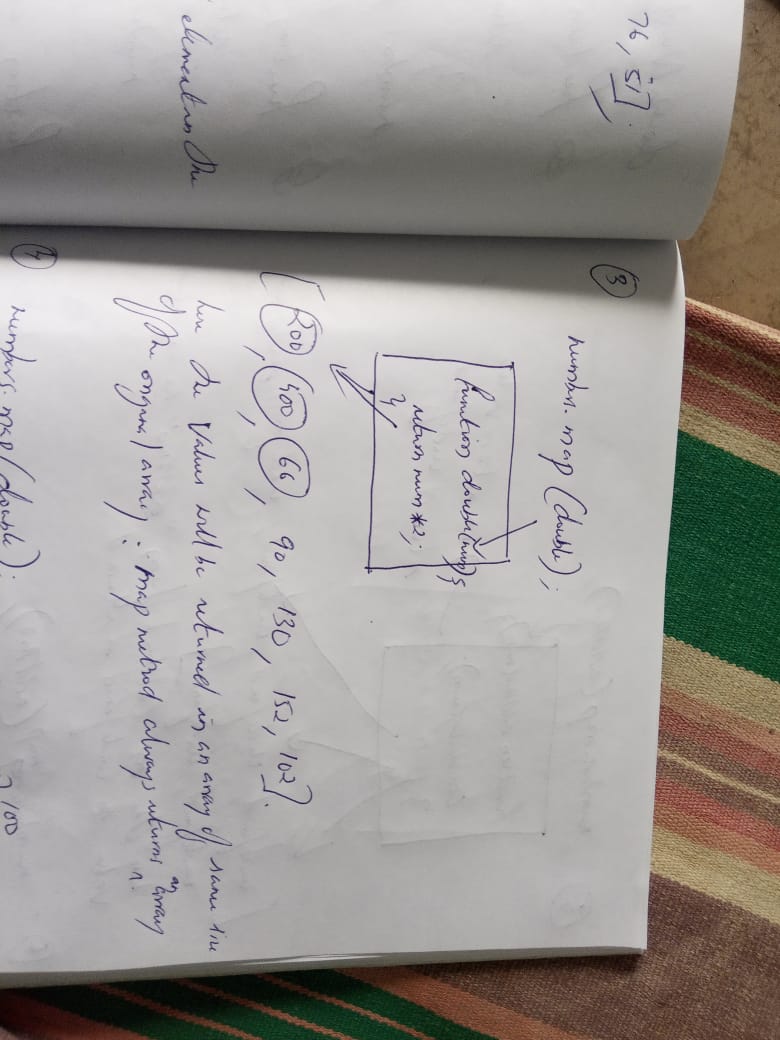 76, 51].
elements the
3
number. map (double);
function double(num){
return num*2;
}
[200, 400, 66, 90, 130, 152, 102].
here the values will be returned in an array of same size
of the original array : map method always returns an array
4
numbers. map (double);
100